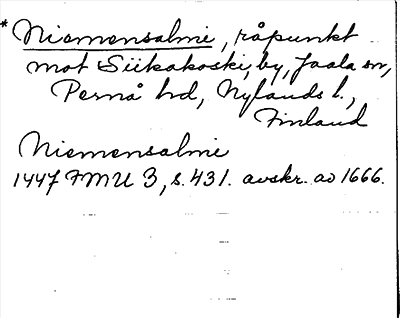 *Niemensalmi, råpunkt
mot Siikakoski, by, Jaala sn,
Pernå hd, Nylands l.,
Finland
Niemensalmi
1447 FMU 3, s. 431. avskr. av 1666.